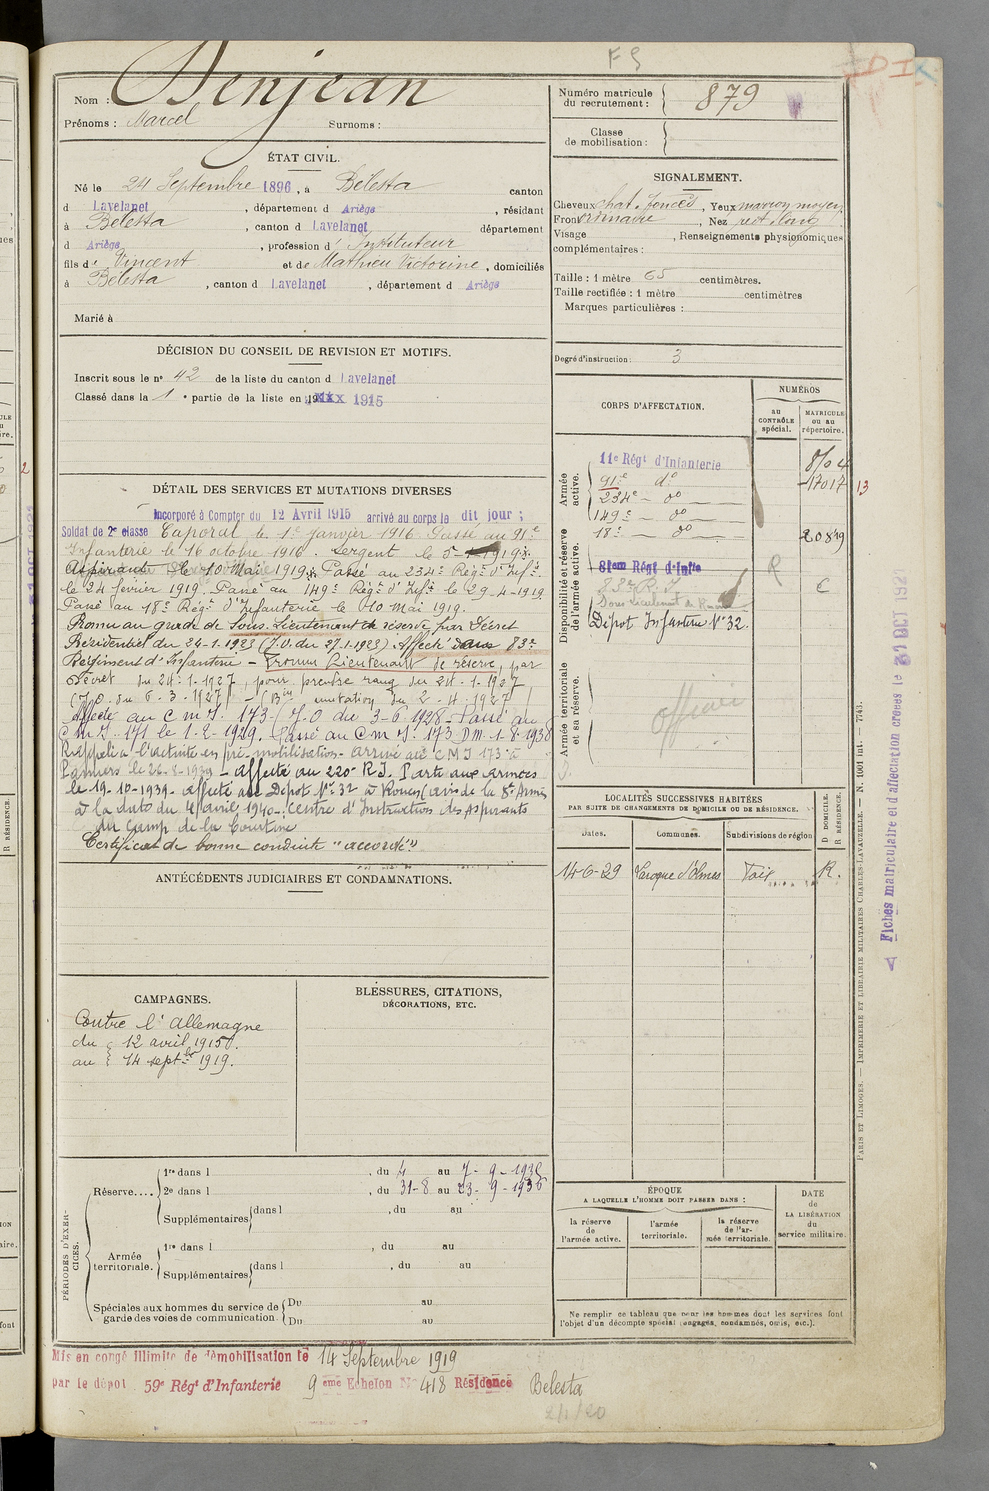 F S
Nom : Denjean
Prénoms : Marcel Surnoms :
ÉTAT CIVIL.
Né le 24 Septembre 1896, à Bélesta canton
d Lavelanet, département d Ariège, résidant
à Bélesta, canton d Lavelanet département
d Ariège, profession d' Instituteur
fils de Vincent et de Mathieu Victorine, domiciliés
à Bélesta, canton d Lavelanet, département d Ariège
Marié à
DÉCISION DU CONSEIL DE REVISION ET MOTIFS.
Inscrit sous le n° 42 de la liste du canton d Lavelanet
Classé dans la 1e partie de la liste en 1915
DÉTAIL DES SERVICES ET MUTATIONS DIVERSES
Incorporé à Compter du 12 Avril 1915 arrivé au corps le dit jour ;
Soldat de 2e classe Caporal le 1er janvier 1916 Passé au 91e
Infanterie le 16 octobre 1916. Sergent le
Aspirant le 10 Mai 1919. Passé au 234e Régt d'Infie
le 24 février 1919. Passé au 149e Régt d'Infie le 29-4-1919
Passé au 18e Régt d'Infanterie le 10 Mai 1919.
Promu au grade de Sous-Lieutenant de réserve par Décret
Présidentiel du 24-1-1923 (J.O. du 27-1-1923) Affecté dans 83e
Régiment d'Infanterie - Promu Lieutenant de réserve, par
Décret du 24-1-1927, pour prendre rang du 24-1-1927
(J.O. du 6-3-1927) (Bin mutation du 2-4-1927)
Affecté au C M I. 173 (J.O du 3-6-1928 - Passé au
C M I. 171 le 1-2-1929. Passé au C M I. 173 DM. 1-8-1938
Rappelé à l'activité en pré-mobilisation - arrivé au C M I 173 à
Pamiers le - Affecté au 220e R.I. Parti aux Armées
le 19-10-1939 - affecté au Dépôt N° 32 à Rouen (avis de la 8e Armée
à la date du 4 avril 1940 - Centre d'Instruction des Aspirants
du Camp de la Courtine
Certificat de bonne conduite "accordé"
ANTÉCÉDENTS JUDICIAIRES ET CONDAMNATIONS.
CAMPAGNES.
Contre l'Allemagne
du 12 avril 1915
au 14 septbre 1919.
BLESSURES, CITATIONS,
DÉCORATIONS, ETC.
PÉRIODES D'EXERCICES.
Réserve.... 1re dans l , du 4 au 7-9-193
2e dans l , du 31-8 au 23-9-1936
Supplémentaires dans l , du au
Armée territoriale. 1re dans l , du au
Supplémentaires dans l , du au
Spéciales aux hommes du service de garde des voies de communication. Du au
Du au
Mis en congé illimité de démobilisation le 14 Septembre 1919
par le dépôt 59e Régt d'Infanterie 9eme Echelon N° 418 Résidence Belesta
2/1/20
Numéro matricule
du recrutement : 879
Classe
de mobilisation :
SIGNALEMENT.
Cheveux chat. foncés, Yeux marron moyen
Front ordinaire, Nez rect. long
Visage , Renseignements physionomiques
complémentaires :
Taille : 1 mètre 65 centimètres.
Taille rectifiée : 1 mètre centimètres
Marques particulières :
Degré d'instruction : 3
CORPS D'AFFECTATION.
NUMÉROS
AU CONTRÔLE spécial.
MATRICULE OU AU répertoire.
Armée active.
11e Régt d'Infanterie 8704
91e do 17017 13
234e - do
149e - do
18e - do 20849
Disponibilité et réserve de l'armée active.
81em Régt d'Infie
83e R. I
Sous Lieutenant de Réserve
Dépôt Infanterie N° 32.
Armée territoriale et sa réserve.
officier
LOCALITÉS SUCCESSIVES HABITÉES
PAR SUITE DE CHANGEMENTS DE DOMICILE OU DE RÉSIDENCE.
Dates. Communes. Subdivisions de région D DOMICILE. R RÉSIDENCE.
14-6-29 Laroque d'Olmes Foix R.
ÉPOQUE
A LAQUELLE L'HOMME DOIT PASSER DANS :
la réserve de l'armée active.
l'armée territoriale.
la réserve de l'armée territoriale.
DATE
de
LA LIBÉRATION
du
service militaire.
Ne remplir ce tableau que pour les hommes dont les services font
l'objet d'un décompte spécial (engagés, condamnés, omis, etc.).
PARIS ET LIMOGES. — IMPRIMERIE ET LIBRAIRIE MILITAIRES CHARLES-LAVAUZELLE. — N. 1001 int. — 7743.
Fiches matriculaire et d'affectation créées le 31 OCT 192